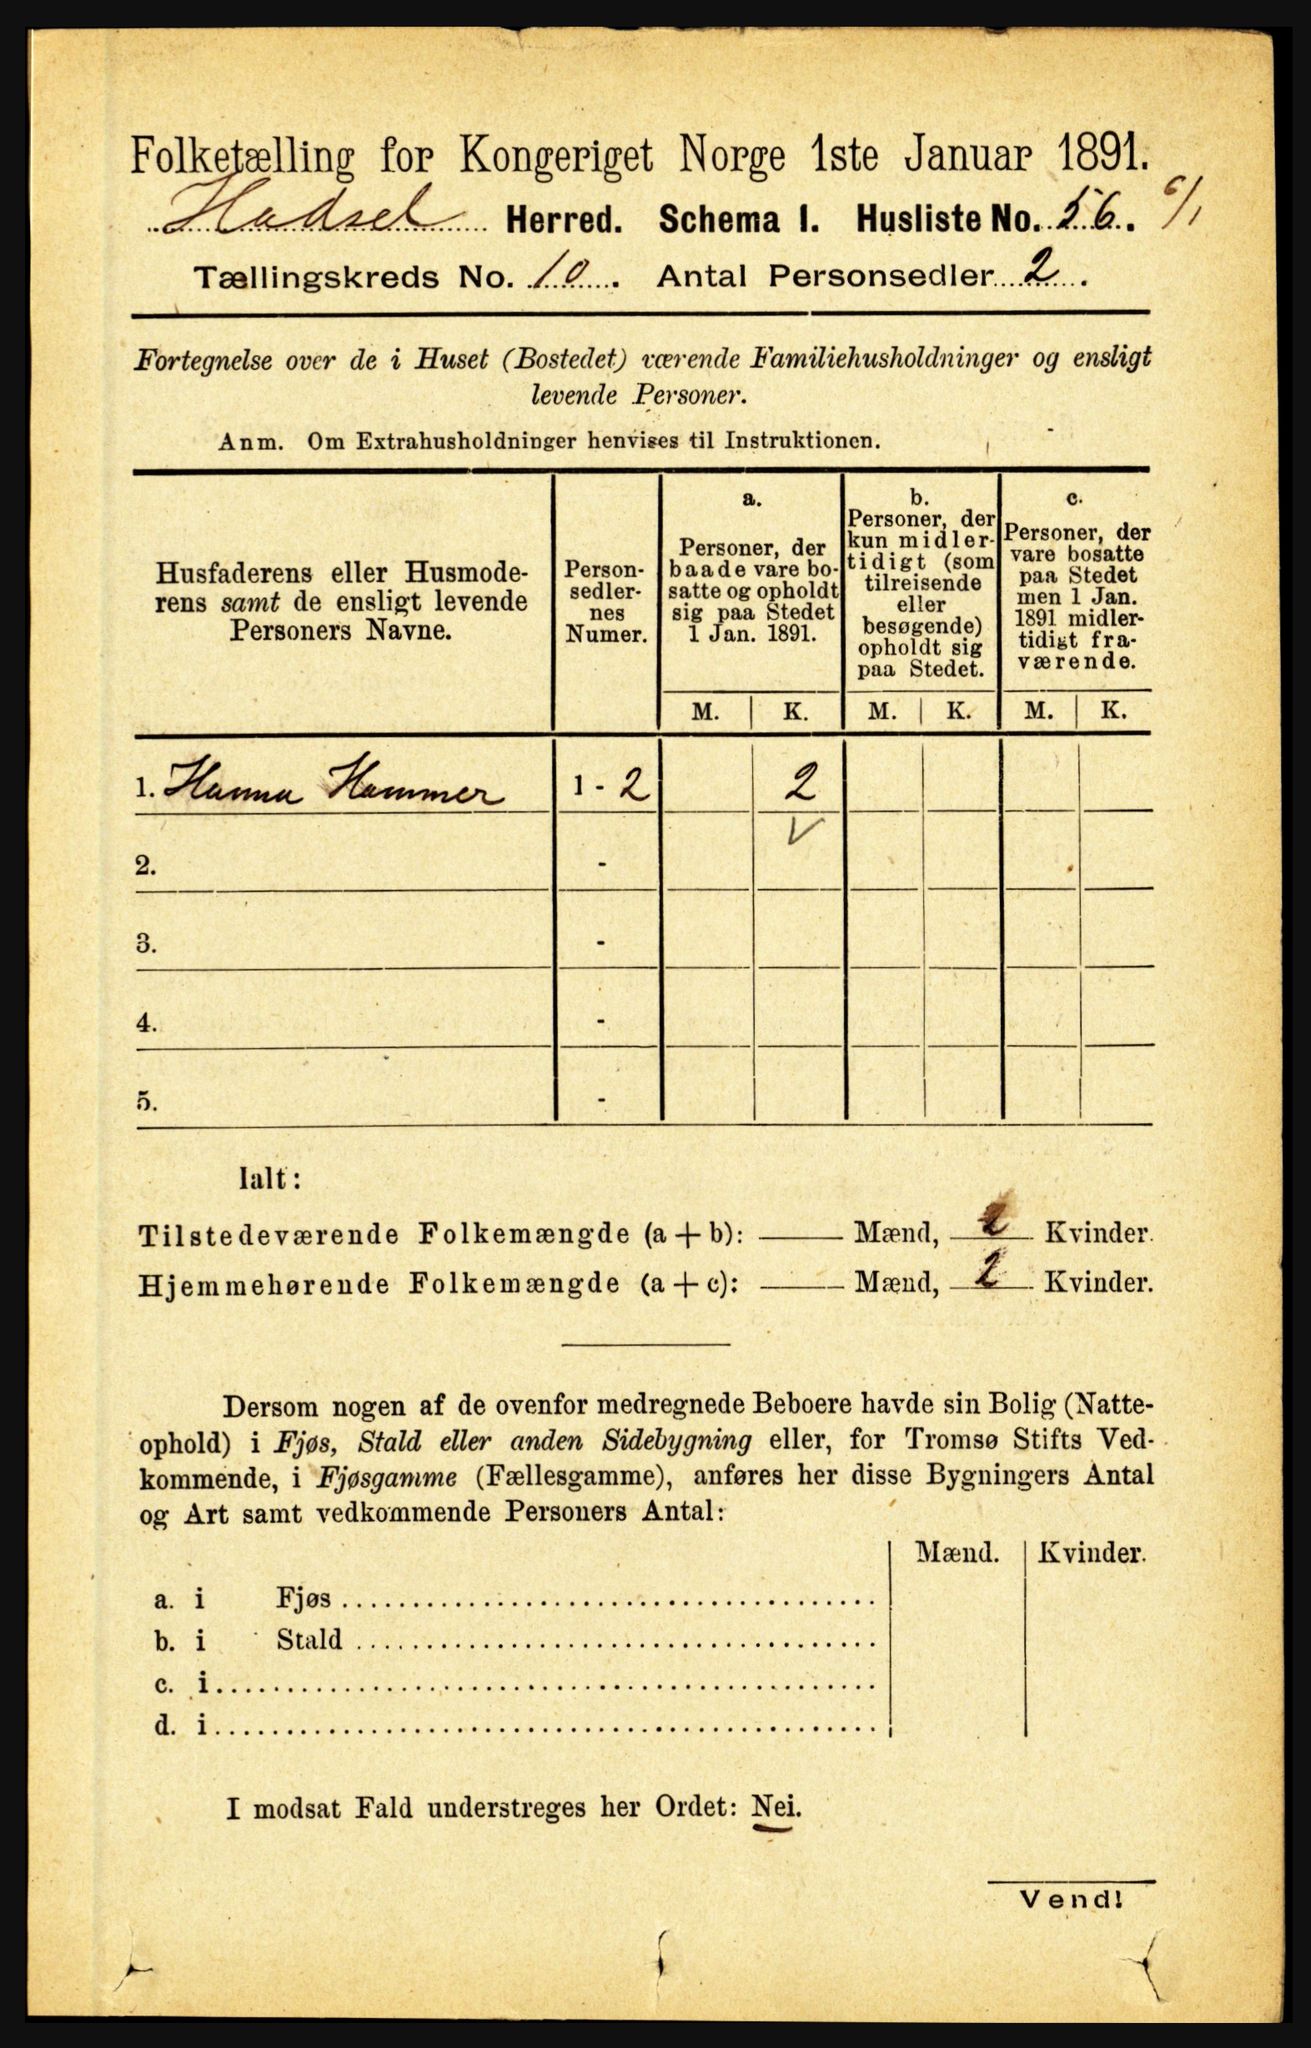 Folketælling for Kongeriget Norge 1ste Januar 1891.
Hadsel Herred. Schema I. Husliste No. 56. 6/1
Tællingskreds No. 10. Antal Personsedler 2.
Fortegnelse over de i Huset (Bostedet) værende Familiehusholdninger og ensligt
levende Personer.
Anm. Om Extrahusholdninger henvises til Instruktionen.
Husfaderens eller Husmode-
rens samt de ensligt levende
Personers Navne.
Person-
sedler-
nes
Numer.
a.
Personer, der
baade vare bo-
satte og opholdt
sig paa Stedet
1 Jan. 1891.
b.
Personer, der
kun midler-
tidigt (som
tilreisende
eller
besøgende)
opholdt sig
paa Stedet.
c.
Personer, der
vare bosatte
paa Stedet
men 1 Jan.
1891 midler-
tidigt fra-
værende.
M. K. M. K. M. K.
1. Hanna Hammer 1 - 2 2
2. -
3. -
4. -
5. -
Ialt:
Tilstedeværende Folkemængde (a + b): Mænd, 2 Kvinder.
Hjemmehørende Folkemængde (a + c): Mænd, 2 Kvinder.
Dersom nogen af de ovenfor medregnede Beboere havde sin Bolig (Natte-
ophold) i Fjøs, Stald eller anden Sidebygning eller, for Tromsø Stifts Ved-
kommende, i Fjøsgamme (Fællesgamme), anføres her disse Bygningers Antal
og Art samt vedkommende Personers Antal:
Mænd. Kvinder.
a. i Fjøs
b. i Stald
c. i
d. i
I modsat Fald understreges her Ordet: Nei.
Vend!